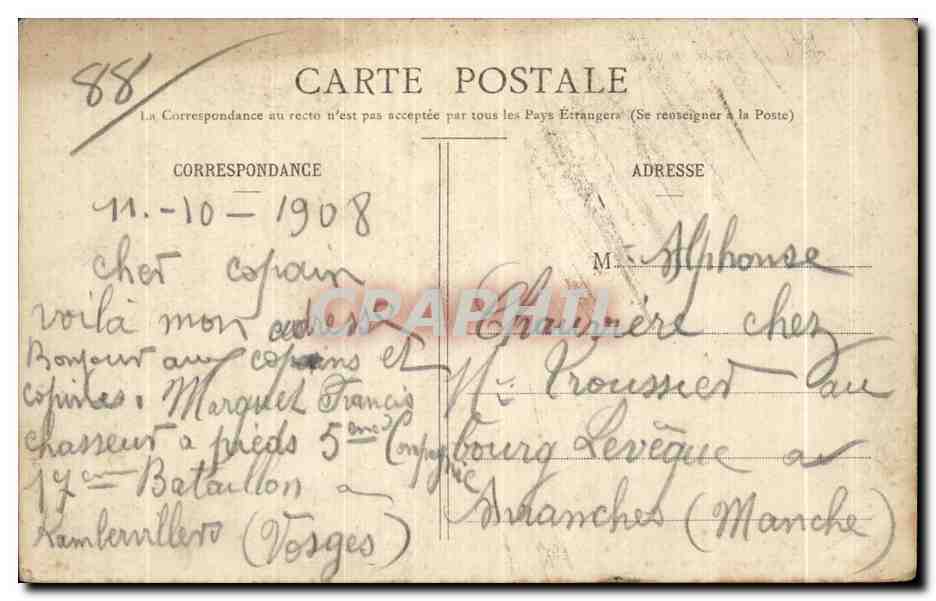 88
CARTE POSTALE
La Correspondance au recto n'est pas acceptée par tous les Pays Étrangers (Se renseigner à la Poste)
CORRESPONDANCE
11.-10-1908
cher copain
voilà mon adress
Bonjour aux copains et
copines. Marquet Francis
chasseur a pieds 5eme Compagnie
17em Bataillon a
Rambervillers (Vosges)
ADRESSE
M. Alphonse
chez
Mr Troussier au
bourg Levêque a
Avranches (Manche)
CPAPHIL